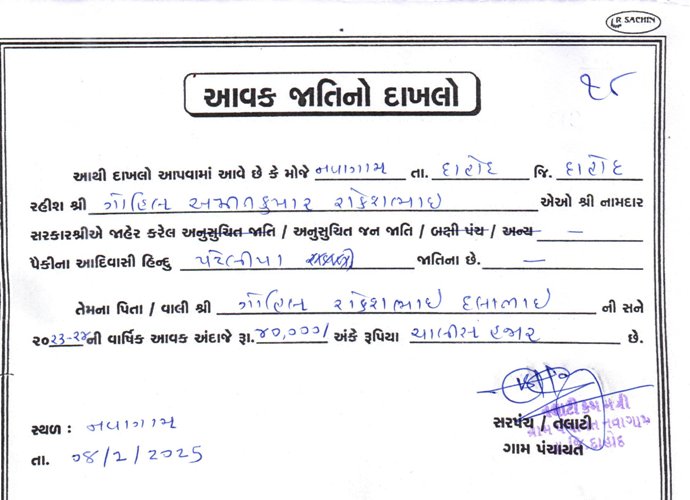 R SACHIN
૧૮
આવક જાતિનો દાખલો
આથી દાખલો આપવામાં આવે છે કે મોજે નવાગામ તા. દાહોદ જિ. દાહોદ
રહીશ શ્રી ગોહિલ અમીતકુમાર રાકેશભાઇ એઓ શ્રી નામદાર
સરકારશ્રીએ જાહેર કરેલ અનુસુચિત જાતિ / અનુસુચિત જન જાતિ / બક્ષી પંચ / અન્ય —
પૈકીના આદિવાસી હિન્દુ પટેલીયા જાતિના છે. —
તેમના પિતા / વાલી શ્રી ગોહિલ રાકેશભાઇ દલાભાઇ ની સને
૨૦૨૩-૨૪ ની વાર્ષિક આવક અંદાજે રૂા. ૪૦,૦૦૦/ અંકે રૂપિયા ચાલીસ હજાર છે.
સરપંચ / તલાટી
ગામ પંચાયત
તલાટી કમ મંત્રી
ગ્રામ પંચાયત નવાગામ
જિ દાહોદ
સ્થળ : નવાગામ
તા. ૦૪/2/2025